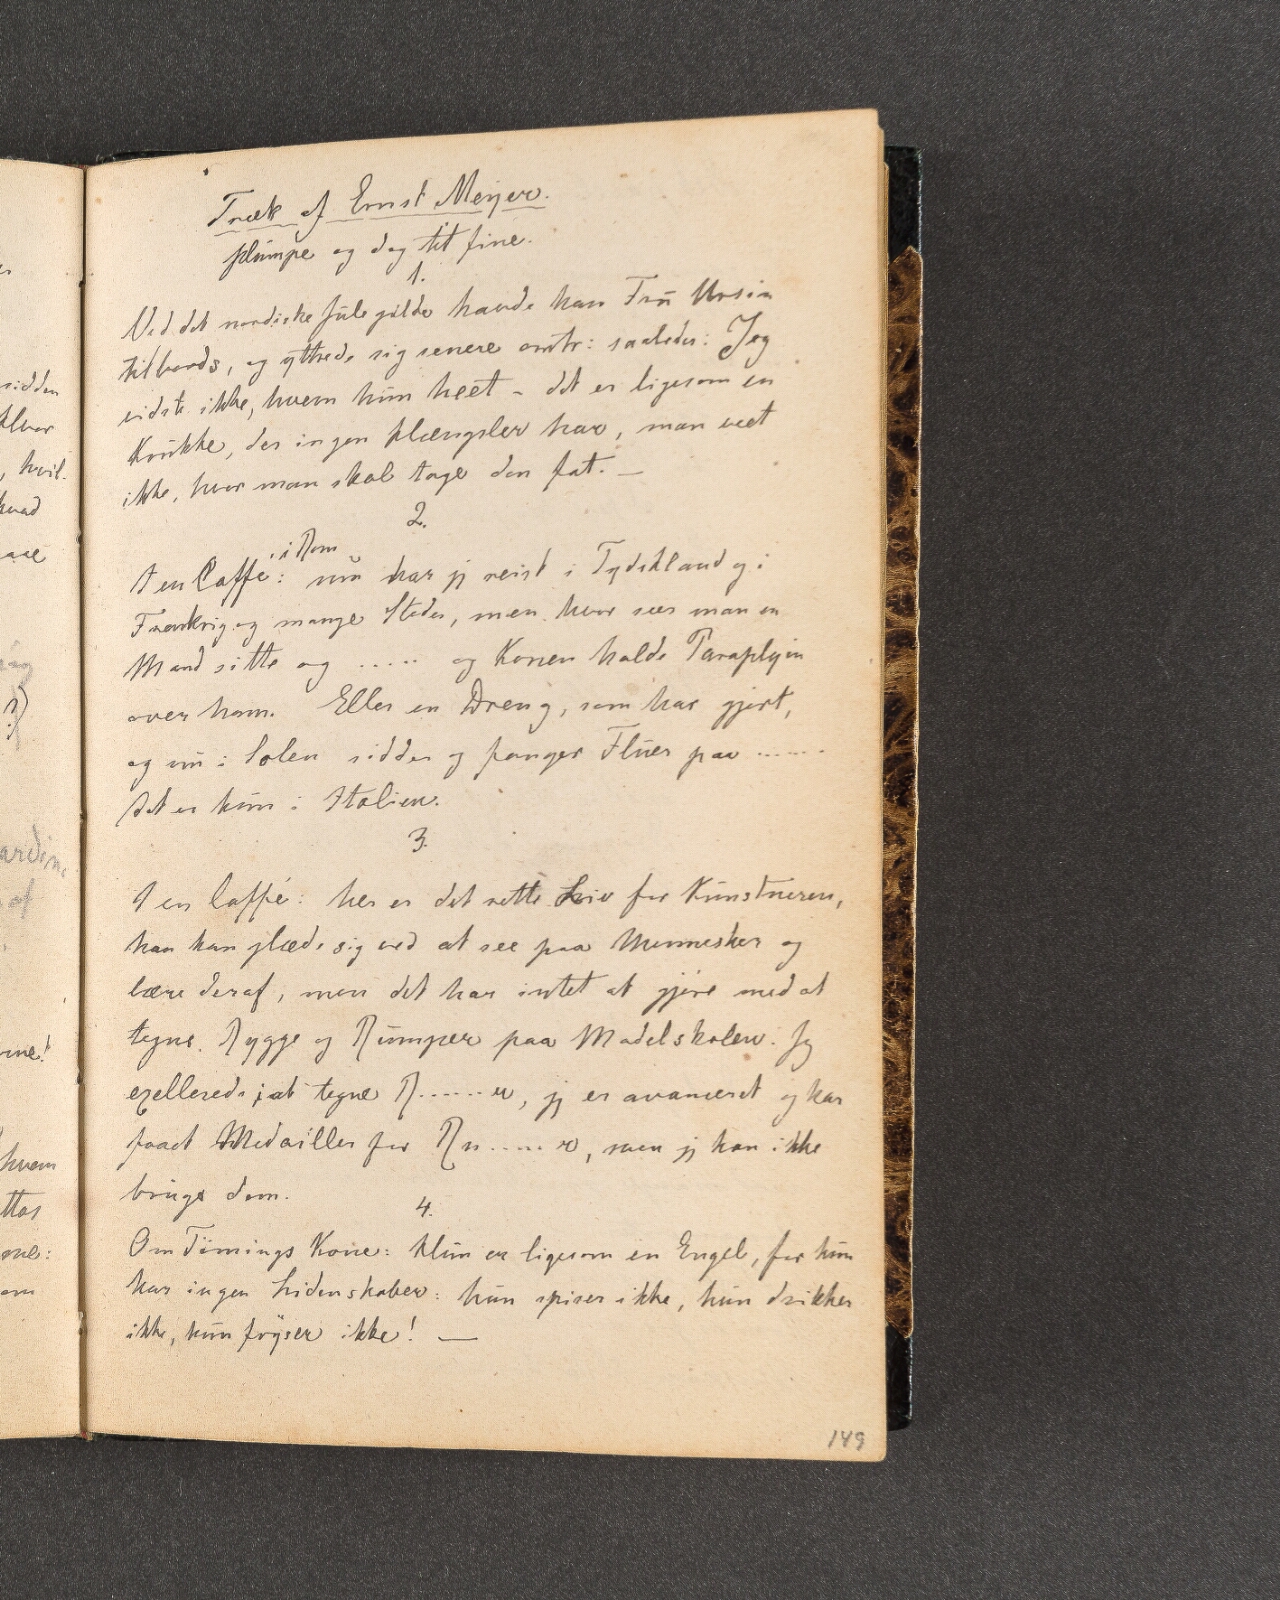 Træk af Ernst Meyer.
plumpe og dog tit fine.
1.
Ved det nordiske Julegilde havde han Fru Ursin
tilbords, og yttrede sig senere omtr: saaledes: Jeg
vidste ikke, hvem hun heet – det er ligesom en
Krukke, der ingen Hængsler har, man veet
ikke, hvor man skal tage den fat. —
2.
I en Caffé i Rom: nu har jg reist i Tydskland og i
Frankrig og mange Steder, men hvor seer man en
Mand sitte og ..... og Konen holde Paraplyen
over ham. Eller en Dreng, som har gjort,
og nu i Solen sidder og fanger Fluer paa .......
det er kun i Italien.
3.
I en Caffé: her er det rette Liv for Kunstneren,
han kan glæde sig ved at see paa Mennesker og
lære deraf, men det har intet at gjöre med at
tegne Rygge og Rumper paa Modelskolen. Jg
exellerede i at tegne R......er, jg er avanceret og har
faaet Medailler for Ru.....er, men jg kan ikke
bruge dem.
4.
Om Kone: Hun er ligesom en Engel, for hun
har ingen Lidenskaber: hun spiser ikke, hun drikker
ikke, hun fryser ikke! —
149
sidder
hvil-
hvad
hvem